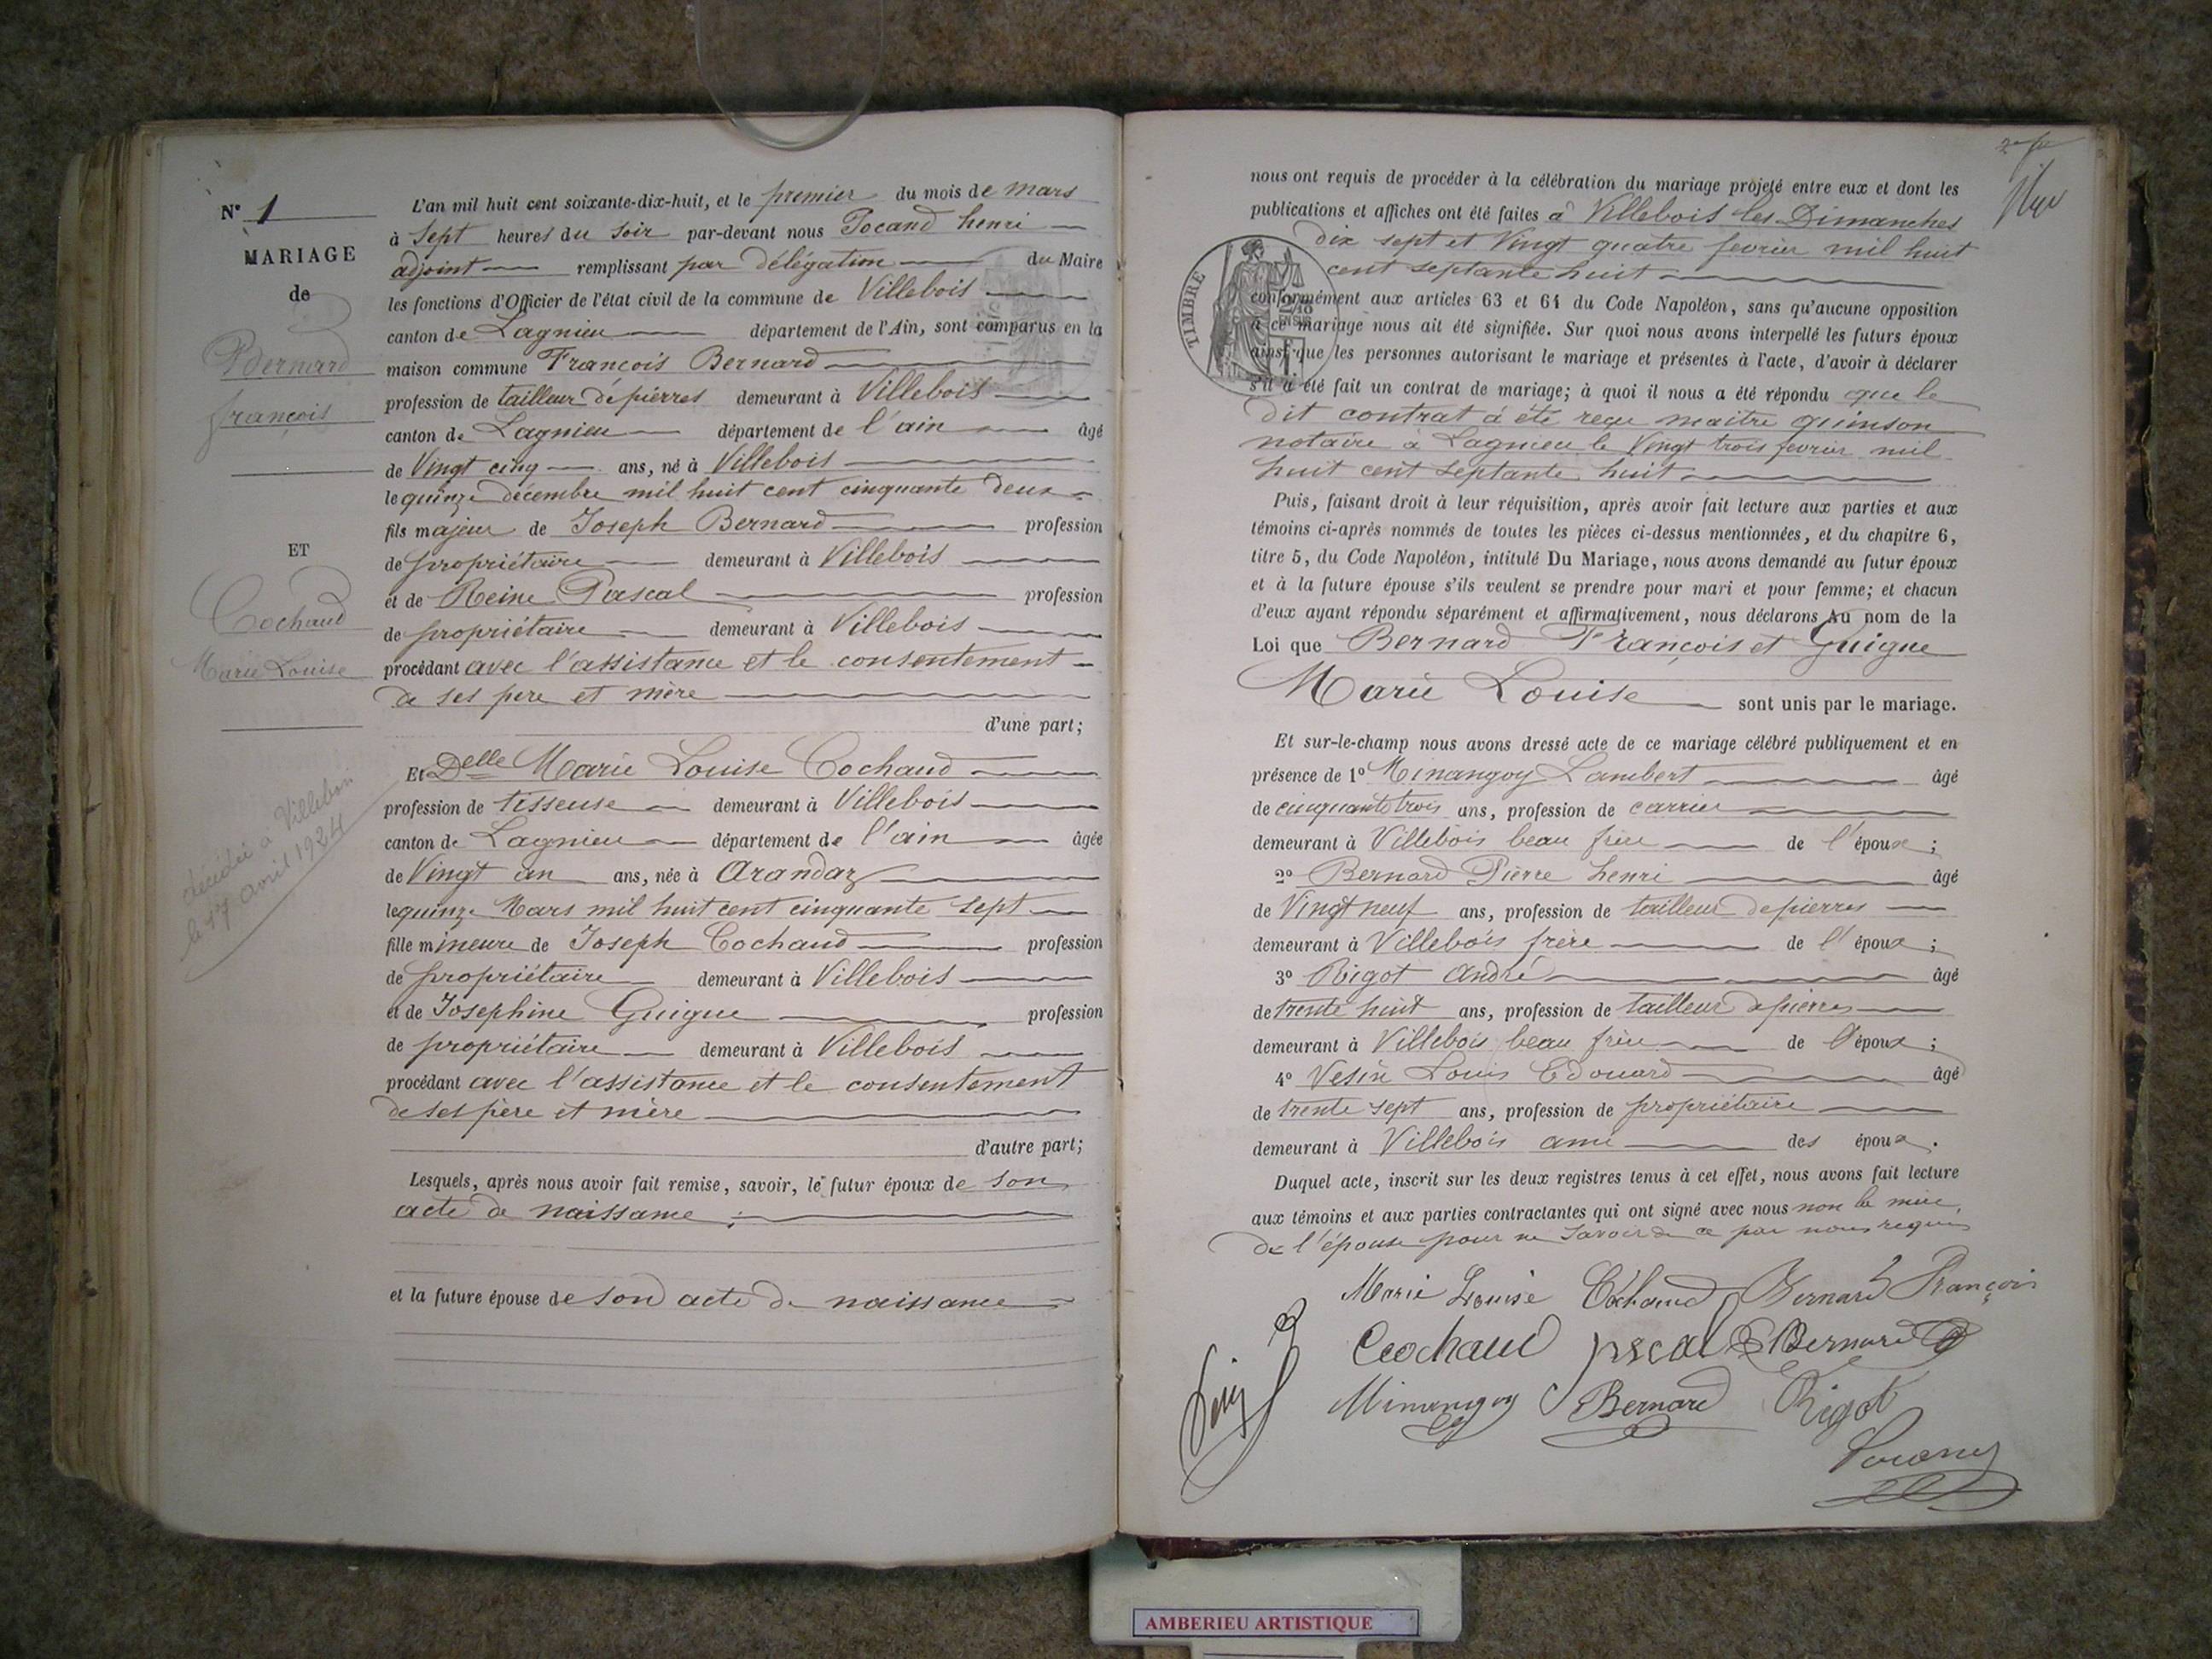 N° 1
MARIAGE
de
Bernard
françois
ET
Cochaud
Marie Louise
décédée à Villebois
le 17 avril 1924
L'an mil huit cent soixante-dix-huit, et le premier du mois de mars
à sept heures du soir par-devant nous Pocand henri
adjoint remplissant par délégation du Maire
les fonctions d'Officier de l'état civil de la commune de Villebois
canton de Lagnieu département de l'Ain, sont comparus en la
maison commune François Bernard
profession de tailleur de pierres demeurant à Villebois
canton de Lagnieu département de l'ain âgé
de Vingt cinq ans, né à Villebois
le quinze décembre mil huit cent cinquante deux
fils majeur de Joseph Bernard profession
de propriétaire demeurant à Villebois
et de Reine Pascal profession
de propriétaire demeurant à Villebois
procédant avec l'assistance et le consentement
de ses pere et mère
d'une part;
Et Delle Marie Louise Cochaud
profession de tisseuse demeurant à Villebois
canton de Lagnieu département de l'ain âgée
de Vingt un ans, née à Arandaz
le quinze Mars mil huit cent cinquante sept
fille mineure de Joseph Cochaud profession
de propriétaire demeurant à Villebois
et de Josephine Guigue profession
de propriétaire demeurant à Villebois
procédant avec l'assistance et le consentement
de ses père et mère
d'autre part;
Lesquels, après nous avoir fait remise, savoir, le futur époux de son
acte de naissance ;
et la future épouse de son acte de naissance
nous ont requis de procéder à la célébration du mariage projeté entre eux et dont les
publications et affiches ont été faites à Villebois les Dimanches
dix sept et Vingt quatre fevrier mil huit
cent septante huit
TIMBRE
conformément aux articles 63 et 64 du Code Napoléon, sans qu'aucune opposition
à ce mariage nous ait été signifiée. Sur quoi nous avons interpellé les futurs époux
ainsi que les personnes autorisant le mariage et présentes à l'acte, d'avoir à déclarer
s'il a été fait un contrat de mariage; à quoi il nous a été répondu que le
dit contrat à été reçu maitre quinson
notaire à Lagnieu le Vingt trois fevrier mil
huit cent septante huit
Puis, faisant droit à leur réquisition, après avoir fait lecture aux parties et aux
témoins ci-après nommés de toutes les pièces ci-dessus mentionnées, et du chapitre 6,
titre 5, du Code Napoléon, intitulé Du Mariage, nous avons demandé au futur époux
et à la future épouse s'ils veulent se prendre pour mari et pour femme; et chacun
d'eux ayant répondu séparément et affirmativement, nous déclarons Au nom de la
Loi que Bernard François et Guigue
Marie Louise sont unis par le mariage.
Et sur-le-champ nous avons dressé acte de ce mariage célébré publiquement et en
présence de 1° Minangoy Lambert âgé
de cinquante trois ans, profession de carrier
demeurant à Villebois beau frère de l'époux ;
2° Bernard Pierre henri âgé
de Vingt neuf ans, profession de tailleur de pierres
demeurant à Villebois frère de l'époux ;
3° Rigot André âgé
de trente huit ans, profession de tailleur de pierres
demeurant à Villebois beau frère de l'époux ;
4° Vesin Louis Edouard âgé
de trente sept ans, profession de propriétaire
demeurant à Villebois ami des époux .
Duquel acte, inscrit sur les deux registres tenus à cet effet, nous avons fait lecture
aux témoins et aux parties contractantes qui ont signé avec nous non la mère
de l'épouse pour ne savoir de ce par nous requis
Marie Louise Cochaud Bernard François
Cochaud Bernard
Minangoy Bernard Rigot
AMBERIEU ARTISTIQUE